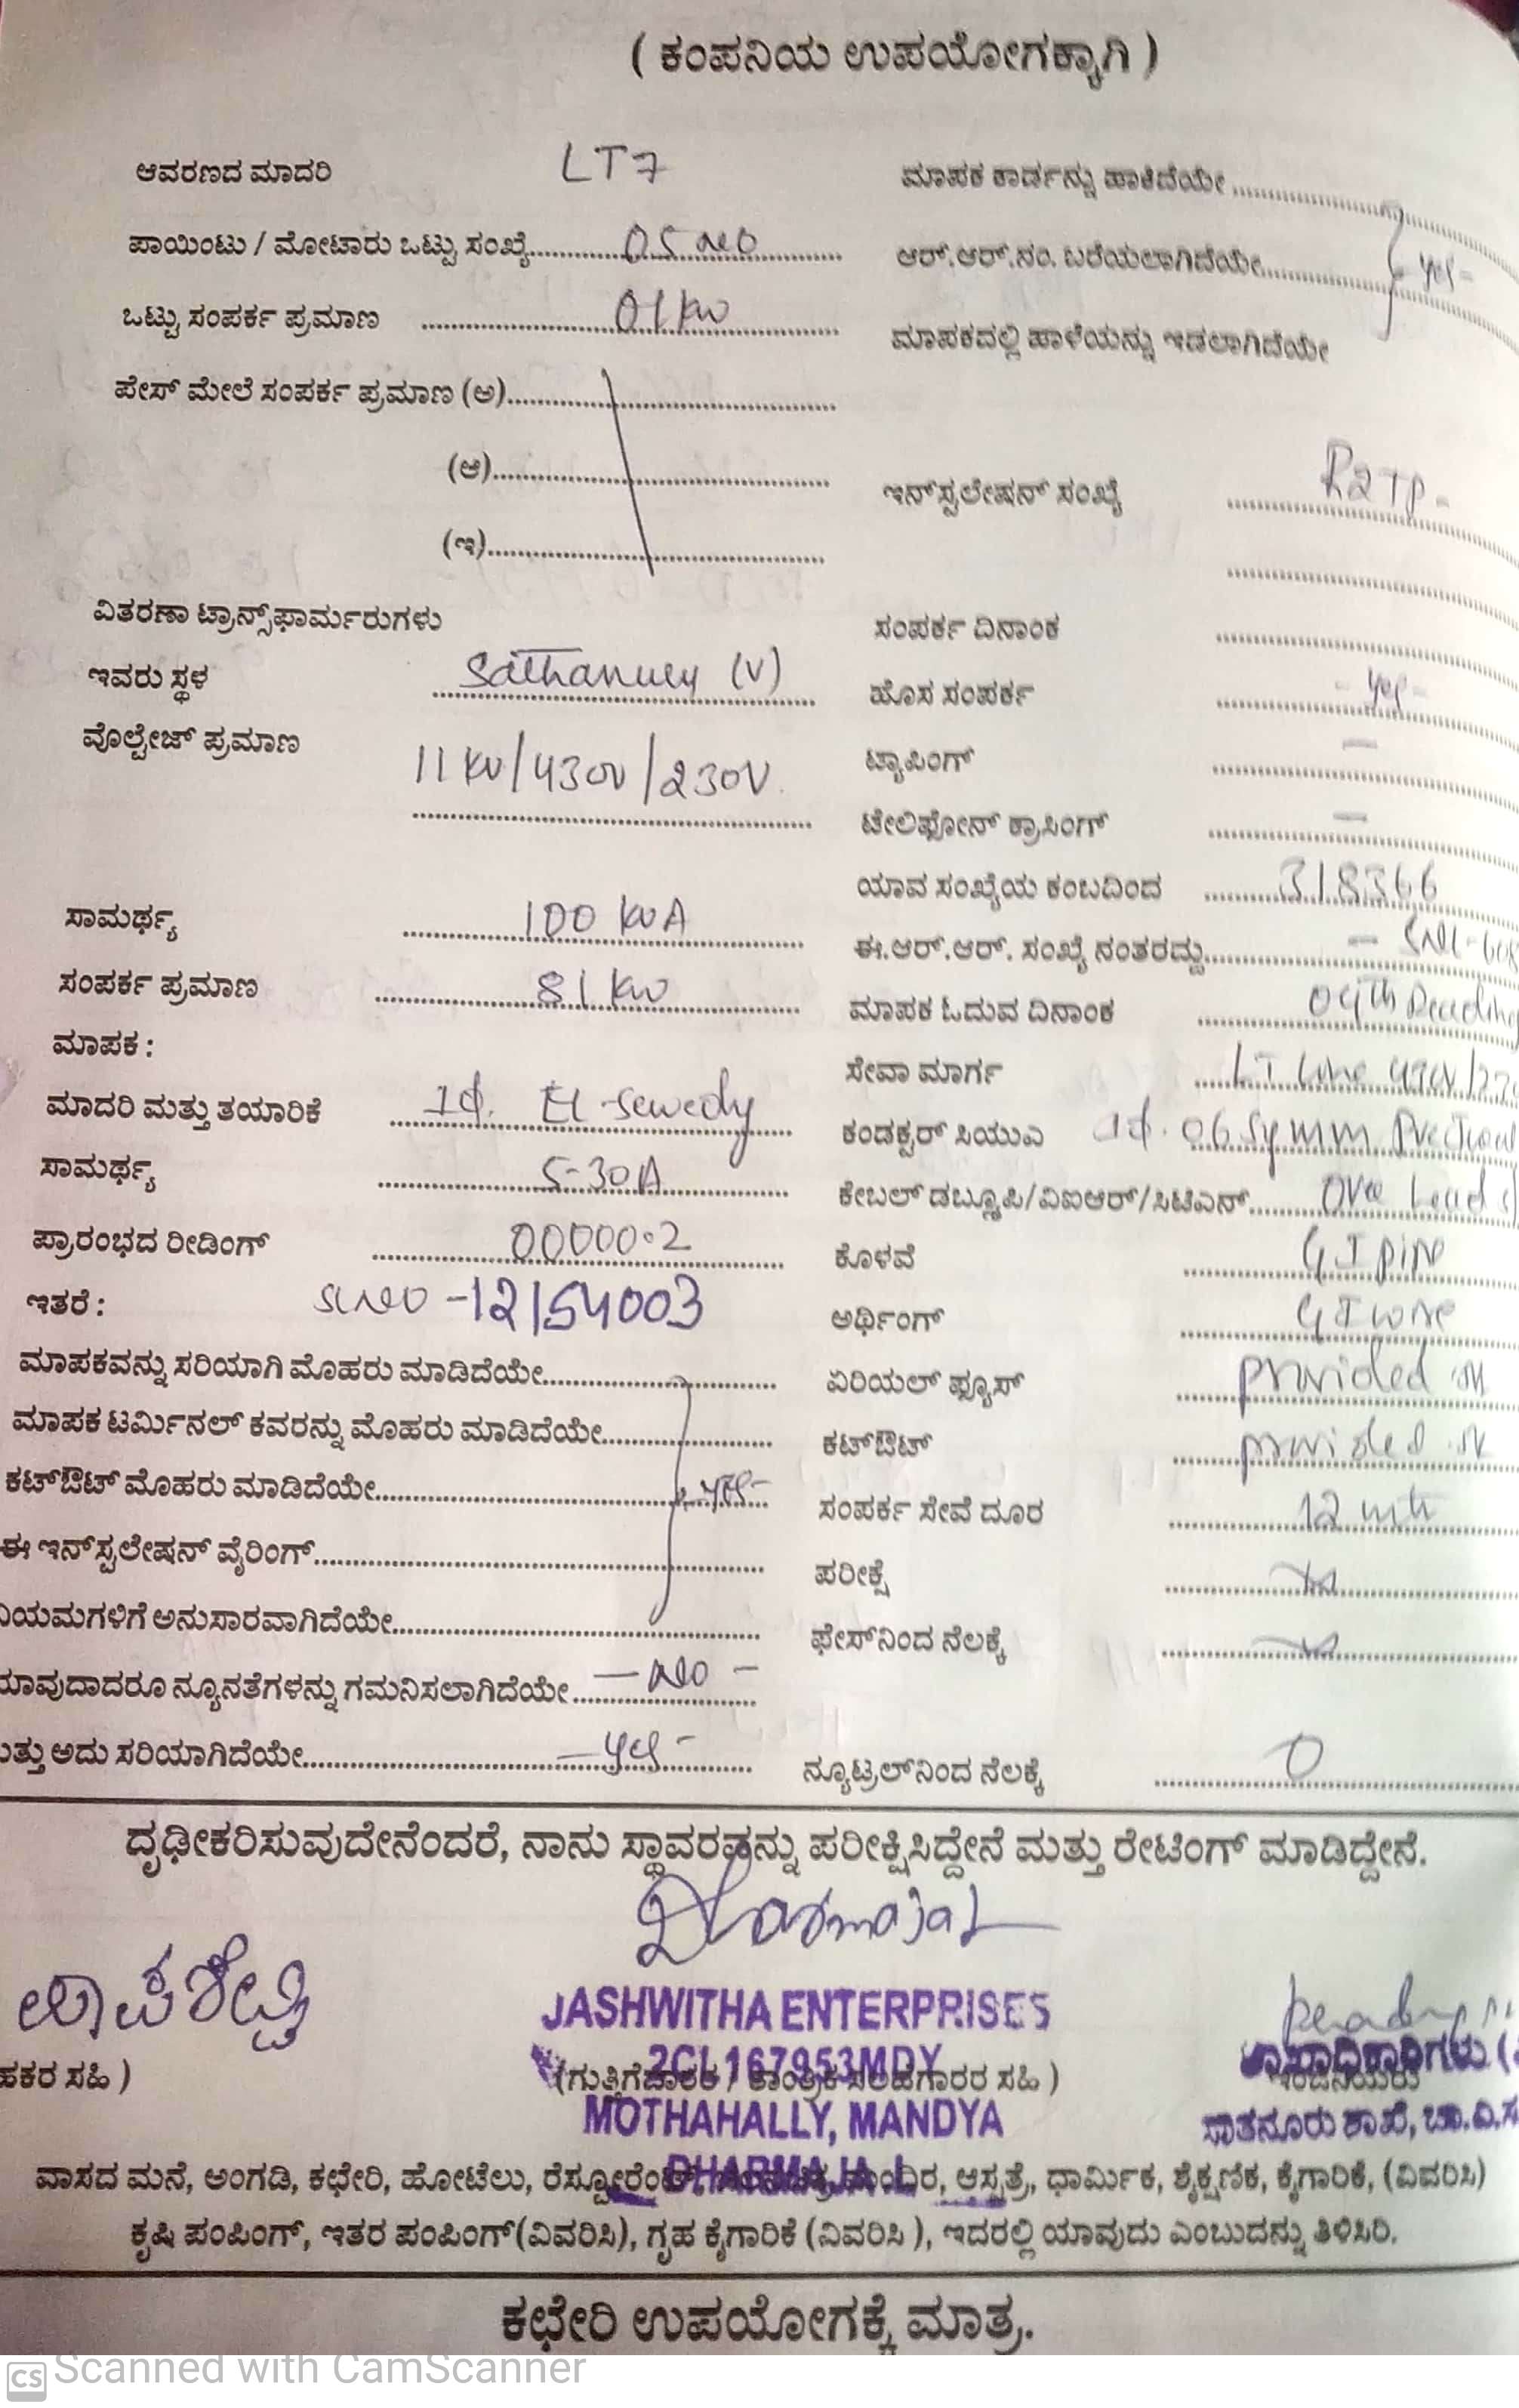 ( ಕಂಪನಿಯ ಉಪಯೋಗಕ್ಕಾಗಿ )
ಆವರಣದ ಮಾದರಿ LT7
ಪಾಯಿಂಟು / ಮೋಟಾರು ಒಟ್ಟು ಸಂಖ್ಯೆ 05 no
ಒಟ್ಟು ಸಂಪರ್ಕ ಪ್ರಮಾಣ 01 kw
ಪೇಸ್ ಮೇಲೆ ಸಂಪರ್ಕ ಪ್ರಮಾಣ (ಅ)
(ಆ)
(ಇ)
ವಿತರಣಾ ಟ್ರಾನ್ಸ್‌ಫಾರ್ಮರುಗಳು
ಇವರು ಸ್ಥಳ (V)
ವೊಲ್ಟೇಜ್ ಪ್ರಮಾಣ
11 kv/430v/230V.
ಸಾಮರ್ಥ್ಯ 100 kvA
ಸಂಪರ್ಕ ಪ್ರಮಾಣ 81 kw
ಮಾಪಕ :
ಮಾದರಿ ಮತ್ತು ತಯಾರಿಕೆ 1ϕ. El-sewedy
ಸಾಮರ್ಥ್ಯ 5-30A
ಪ್ರಾರಂಭದ ರೀಡಿಂಗ್ 00000.2
ಇತರೆ : slno -12154003
ಮಾಪಕವನ್ನು ಸರಿಯಾಗಿ ಮೊಹರು ಮಾಡಿದೆಯೇ
ಮಾಪಕ ಟರ್ಮಿನಲ್ ಕವರನ್ನು ಮೊಹರು ಮಾಡಿದೆಯೇ
ಕಟ್‌ಔಟ್ ಮೊಹರು ಮಾಡಿದೆಯೇ yes-
ಈ ಇನ್‌ಸ್ಟಲೇಷನ್ ವೈರಿಂಗ್
ನಿಯಮಗಳಿಗೆ ಅನುಸಾರವಾಗಿದೆಯೇ
ಯಾವುದಾದರೂ ನ್ಯೂನತೆಗಳನ್ನು ಗಮನಿಸಲಾಗಿದೆಯೇ - No -
ಮತ್ತು ಅದು ಸರಿಯಾಗಿದೆಯೇ - yes -
ಮಾಪಕ ಕಾರ್ಡನ್ನು ಹಾಕಿದೆಯೇ
ಆರ್.ಆರ್.ನಂ. ಬರೆಯಲಾಗಿದೆಯೇ - yes -
ಮಾಪಕದಲ್ಲಿ ಹಾಳೆಯನ್ನು ಇಡಲಾಗಿದೆಯೇ
ಇನ್‌ಸ್ಟಲೇಷನ್ ಸಂಖ್ಯೆ
ಸಂಪರ್ಕ ದಿನಾಂಕ
ಹೊಸ ಸಂಪರ್ಕ - yes -
ಟ್ಯಾಪಿಂಗ್ -
ಟೇಲಿಫೋನ್ ಕ್ರಾಸಿಂಗ್ -
ಯಾವ ಸಂಖ್ಯೆಯ ಕಂಬದಿಂದ 318366
ಈ.ಆರ್.ಆರ್. ಸಂಖ್ಯೆ ನಂತರದ್ದು
ಮಾಪಕ ಓದುವ ದಿನಾಂಕ
ಸೇವಾ ಮಾರ್ಗ LT line
ಕಂಡಕ್ಟರ್ ಸಿಯುಎ 1ϕ. 06 Sqmm
ಕೇಬಲ್ ಡಬ್ಲ್ಯೂಪಿ/ವಿಐಆರ್/ಸಿಟಿಎನ್
ಕೊಳವೆ GI pipe
ಅರ್ಥಿಂಗ್ GI wire
ಏರಿಯಲ್ ಫ್ಯೂಸ್ provided
ಕಟ್‌ಔಟ್ provided
ಸಂಪರ್ಕ ಸೇವೆ ದೂರ 12 mtr
ಪರೀಕ್ಷೆ
ಫೇಸ್‌ನಿಂದ ನೆಲಕ್ಕೆ
ನ್ಯೂಟ್ರಲ್‌ನಿಂದ ನೆಲಕ್ಕೆ 0
ದೃಢೀಕರಿಸುವುದೇನೆಂದರೆ, ನಾನು ಸ್ಥಾವರವನ್ನು ಪರೀಕ್ಷಿಸಿದ್ದೇನೆ ಮತ್ತು ರೇಟಿಂಗ್ ಮಾಡಿದ್ದೇನೆ.
JASHWITHA ENTERPRISES
2CL167953MDY
ಹಕರ ಸಹಿ ) (ಗುತ್ತಿಗೆದಾರರ / ತಾಂತ್ರಿಕ ಸಲಹೆಗಾರರ ಸಹಿ ) ಇಂಜಿನಿಯರು
MOTHAHALLY, MANDYA
ಸಾತನೂರು ಶಾಖೆ,
DHARMAJA L
ವಾಸದ ಮನೆ, ಅಂಗಡಿ, ಕಛೇರಿ, ಹೋಟೆಲು, ರೆಸ್ಟೋರೆಂಟ್, ಆಸ್ಪತ್ರೆ, ಧಾರ್ಮಿಕ, ಶೈಕ್ಷಣಿಕ, ಕೈಗಾರಿಕೆ, (ವಿವರಿಸಿ)
ಕೃಷಿ ಪಂಪಿಂಗ್, ಇತರ ಪಂಪಿಂಗ್(ವಿವರಿಸಿ), ಗೃಹ ಕೈಗಾರಿಕೆ (ವಿವರಿಸಿ ), ಇದರಲ್ಲಿ ಯಾವುದು ಎಂಬುದನ್ನು ತಿಳಿಸಿರಿ.
ಕಛೇರಿ ಉಪಯೋಗಕ್ಕೆ ಮಾತ್ರ.
CS Scanned with CamScanner